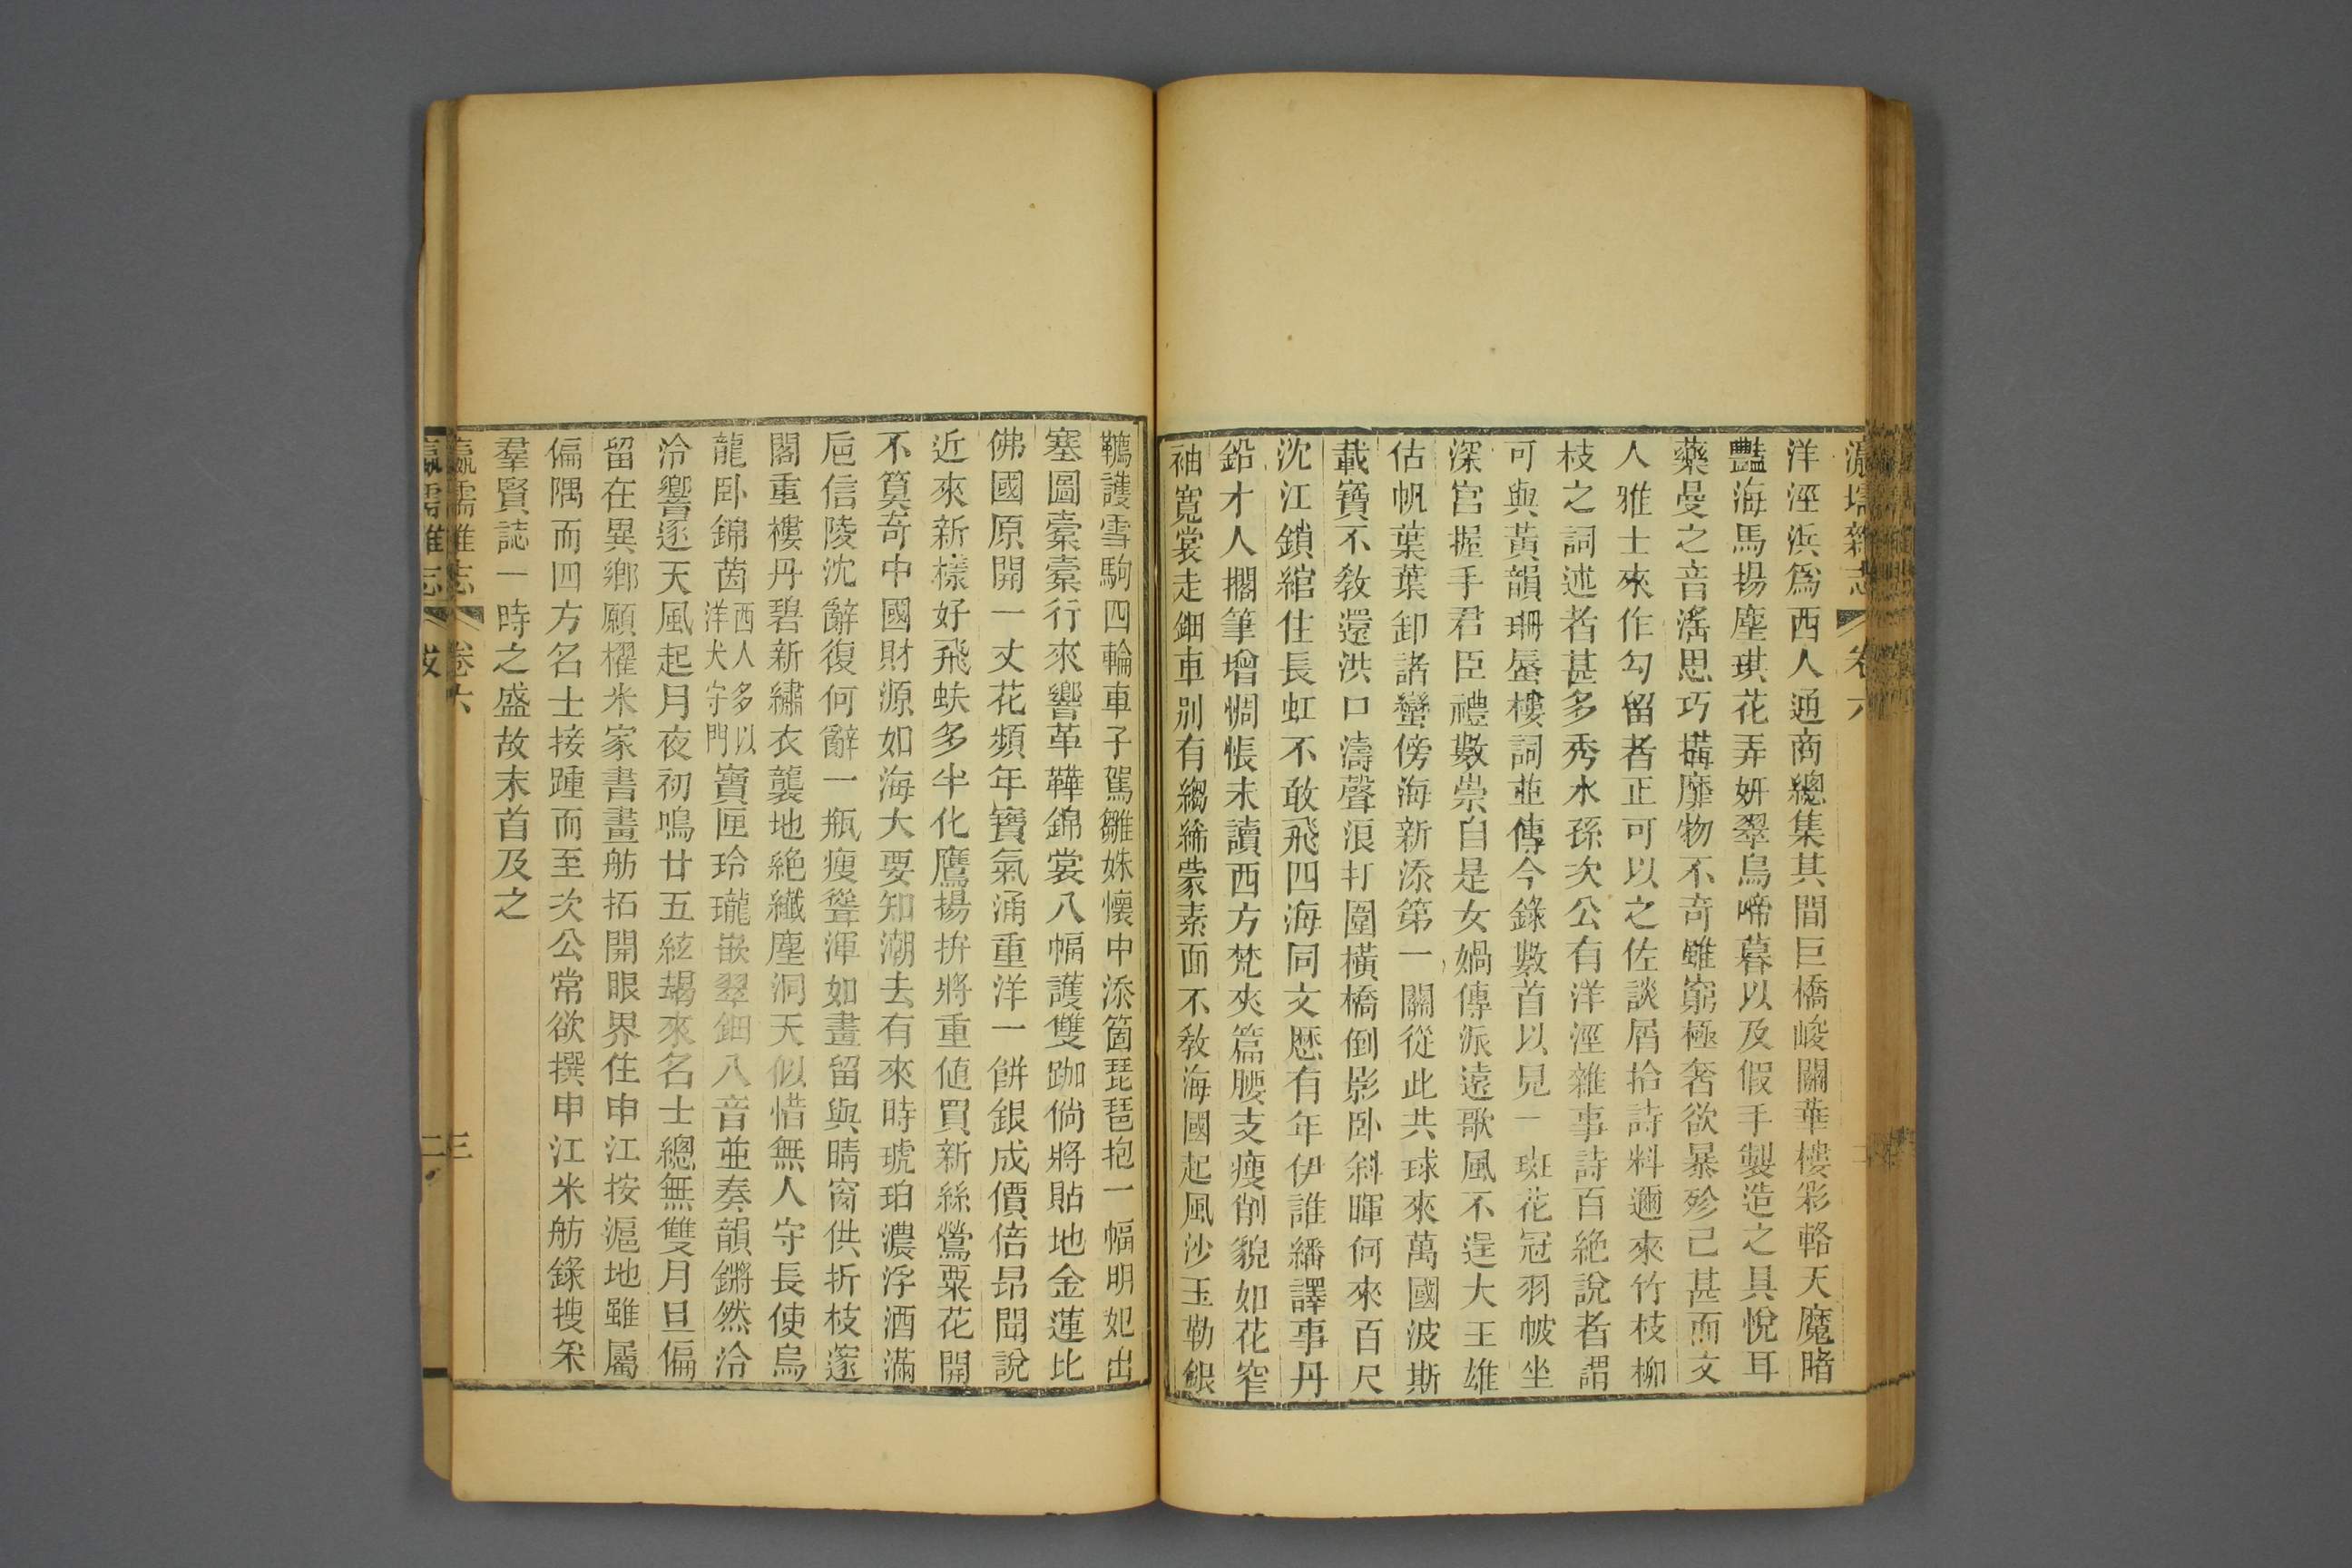 瀛壖雜志 卷六
洋涇浜爲西人通商總集其間巨橋峻關華樓彩輅天魔睹
豔海馬揚塵琪花弄妍翠鳥啼暮以及假手製造之具悅耳
藥曼之音滛思巧搆靡物不奇雖窮極奢欲暴殄已甚而文
人雅士來作勾留者正可以之佐談屑拾詩料邇來竹枝柳
枝之詞述者甚多秀水孫次公有洋涇雜事詩百絶說者謂
可與黃韻珊蜃樓詞並傳今錄數首以見一斑花冠羽帔坐
深宮握手君臣禮數崇自是女媧傳派遠歌風不逞大王雄
估帆葉葉卸諸蠻傍海新添第一關從此共球來萬國波斯
載寶不敎還洪口濤聲浪打圍橫橋倒影卧斜暉何來百尺
沈江鎖綰住長虹不敢飛四海同文歷有年伊誰繙譯事丹
鉛才人擱筆增惆悵未讀西方梵夾篇腰支瘦削貌如花窄
袖寬裳走鈿車别有縐絺蒙素面不敎海國起風沙玉勒銀
韉護雪駒四輪車子駕雛姝懷中添箇琵琶抱一幅明妃出
塞圖橐橐行來響革鞾錦裳八幅護雙跏倘將貼地金蓮比
佛國原開一丈花頻年寶氣涌重洋一餅銀成價倍昂聞說
近來新樣好飛蚨多半化鷹揚拚將重値買新絲鶯粟花開
不算奇中國財源如海大要知潮去有來時琥珀濃浮酒滿
巵信陵沈辭復何辭一瓶瘦聳渾如畫留與晴窗供折枝邃
閣重樓丹碧新繡衣襲地絶纖塵洞天似惜無人守長使烏
龍卧錦茵西人多以洋犬守門寶匣玲瓏嵌翠鈿八音並奏韻鏘然泠
泠響逐天風起月夜初鳴廿五絃朅來名士總無雙月旦偏
留在異鄕願櫂米家書畫舫拓開眼界住申江按滬地雖屬
偏隅而四方名士接踵而至次公常欲撰申江米舫錄搜采
羣賢誌一時之盛故末首及之
瀛壖雜志 卷六 三
瀛壖雜志 跋 二